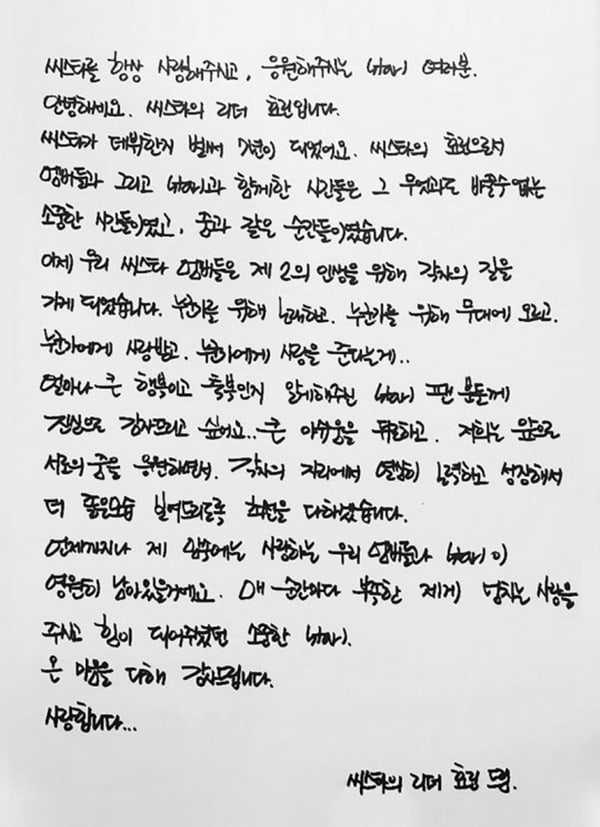 씨스타를 항상 사랑해주시고, 응원해주시는 STAR1 여러분.
안녕하세요. 씨스타의 리더 효린입니다.
씨스타가 데뷔한지 벌써 7년이 되었어요. 씨스타의 효린으로서
멤버들과 그리고 STAR1과 함께한 시간들은 그 무엇과도 바꿀수 없는
소중한 시간들이었고, 꿈과 같은 순간들이였습니다.
이제 우리 씨스타 멤버들은 제 2의 인생을 위해 각자의 길을
가게 되었습니다. 누군가를 위해 노래하고, 누군가를 위해 무대에 오르고,
누군가에게 사랑받고, 누군가에게 사랑을 준다는게..
얼마나 큰 행복이고 축복인지 알게해주신 STAR1 팬 분들께
진심으로 감사드리고 싶어요.. 큰 아쉬움을 뒤로하고, 저희는 앞으로
서로의 꿈을 응원하면서, 각자의 자리에서 열심히 노력하고 성장해서
더 좋은모습 보여드리도록 최선을 다하겠습니다.
언제까지나 제 마음속에는 사랑하는 우리 멤버들과 STAR1이
영원히 남아있을거에요. 매 순간마다 부족한 제게 넘치는 사랑을
주시고 힘이 되어주셨던 소중한 STAR1.
온 마음을 다해 감사드립니다.
사랑합니다...
씨스타의 리더 효린 드림.